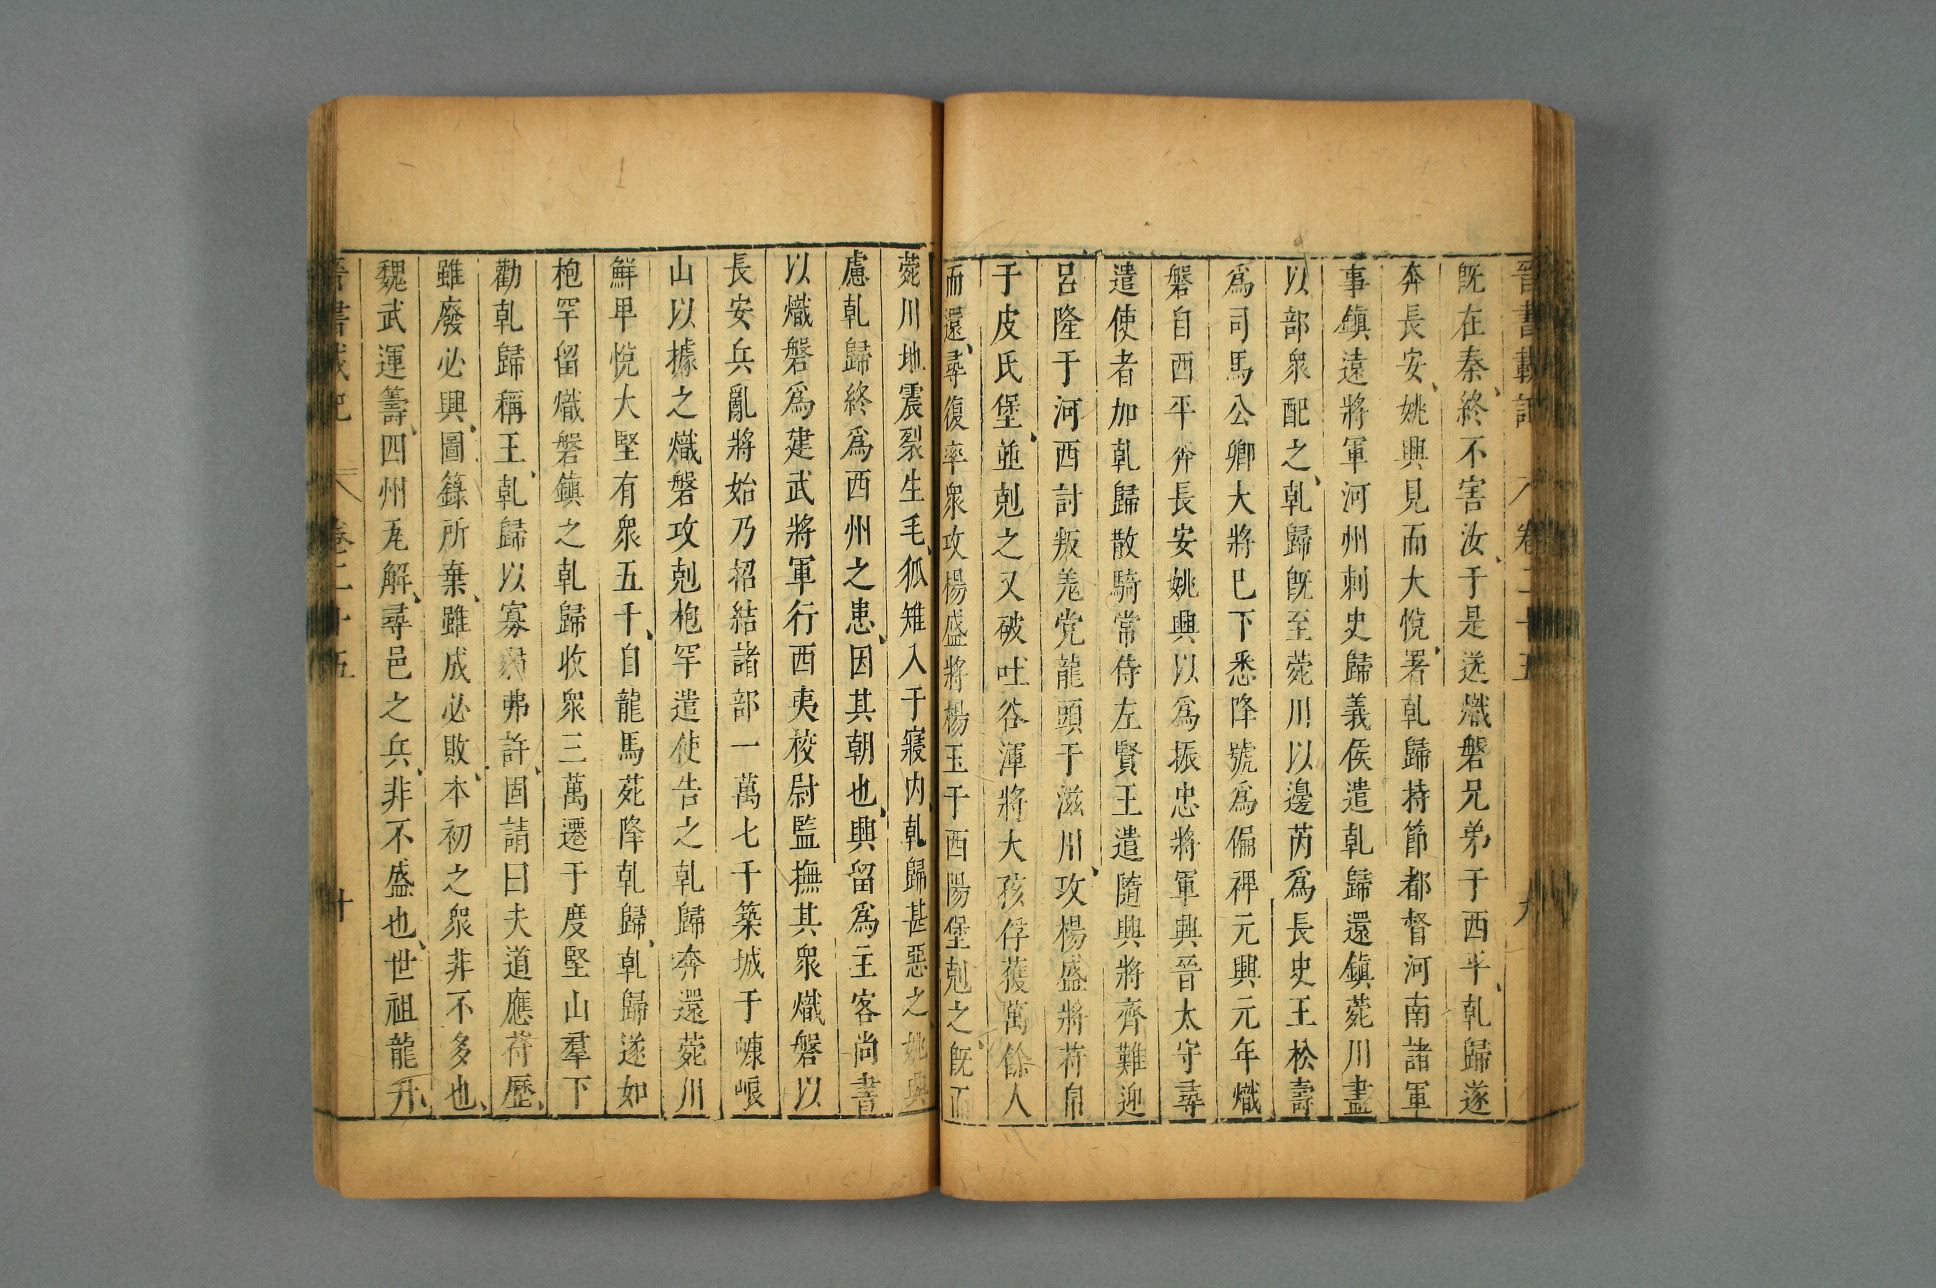 晉書載記 卷二十五 九
既在秦終不害汝于是送熾磐兄弟于西平乹歸遂
奔長安姚興見而大悅署乹歸持節都督河南諸軍
事鎮遠將軍河州刺史歸義侯遣乹歸還鎮菀川盡
以部衆配之乹歸既至菀川以邊芮爲長史王松壽
爲司馬公卿大將已下悉降號爲偏裨元興元年熾
磐自西平奔長安姚興以爲振忠將軍興晉太守尋
遣使者加乹歸散騎常侍左賢王遣隨興將齊難迎
呂隆于河西討叛羗党龍頭于滋川攻楊盛將苻帛
于皮氏堡並剋之又破吐谷渾將大孩俘獲萬餘人
而還尋復率衆攻楊盛將楊玉于西陽堡剋之既而
菀川地震裂生毛狐雉入于寢内乹歸甚惡之姚興
慮乹歸終爲西州之患因其朝也興留爲主客尚書
以熾磐爲建武將軍行西夷校尉監撫其衆熾磐以
長安兵亂將始乃招結諸部一萬七千築城于嵻㟍
山以據之熾磐攻剋枹罕遣使告之乹歸奔還菀川
鮮卑悅大堅有衆五千自龍馬菀降乹歸乹歸遂如
枹罕留熾磐鎮之乹歸收衆三萬遷于度堅山羣下
勸乹歸稱王乹歸以寡弱弗許固請曰夫道應符歷
雖廢必興圖籙所棄雖成必敗本初之衆非不多也
魏武運籌四州瓦解尋邑之兵非不盛也世祖龍升
晉書載記 卷二十五 十